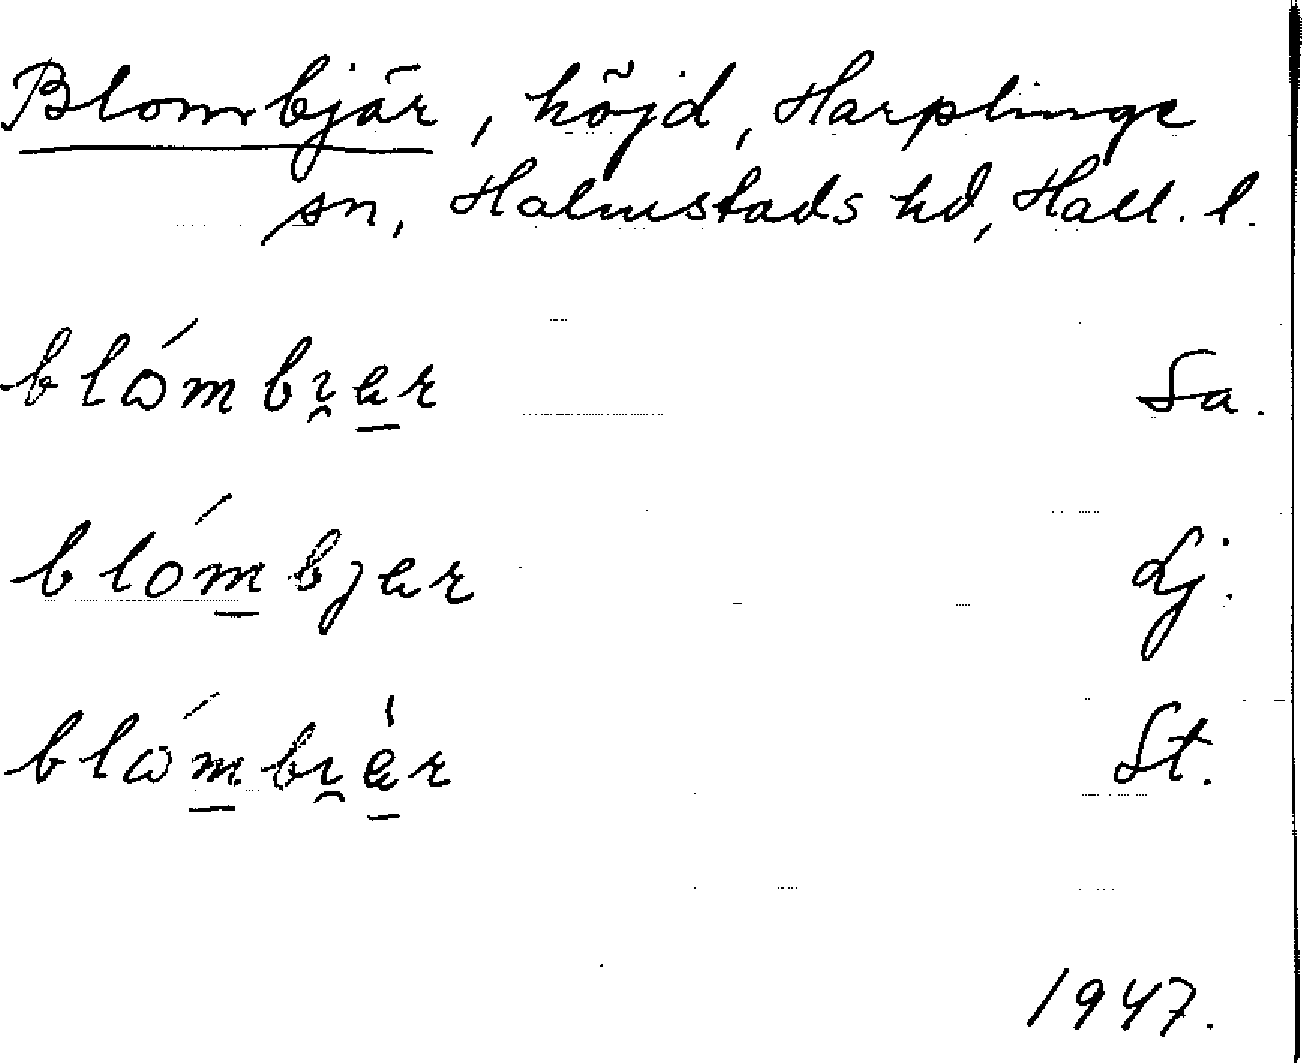 Blombjär, höjd, Harplinge
sn, Halmstads hd, Hall. l.
blómbı̯ær Sa.
blómbjær Lj.
blómbı̯æ̀r St.
1947.